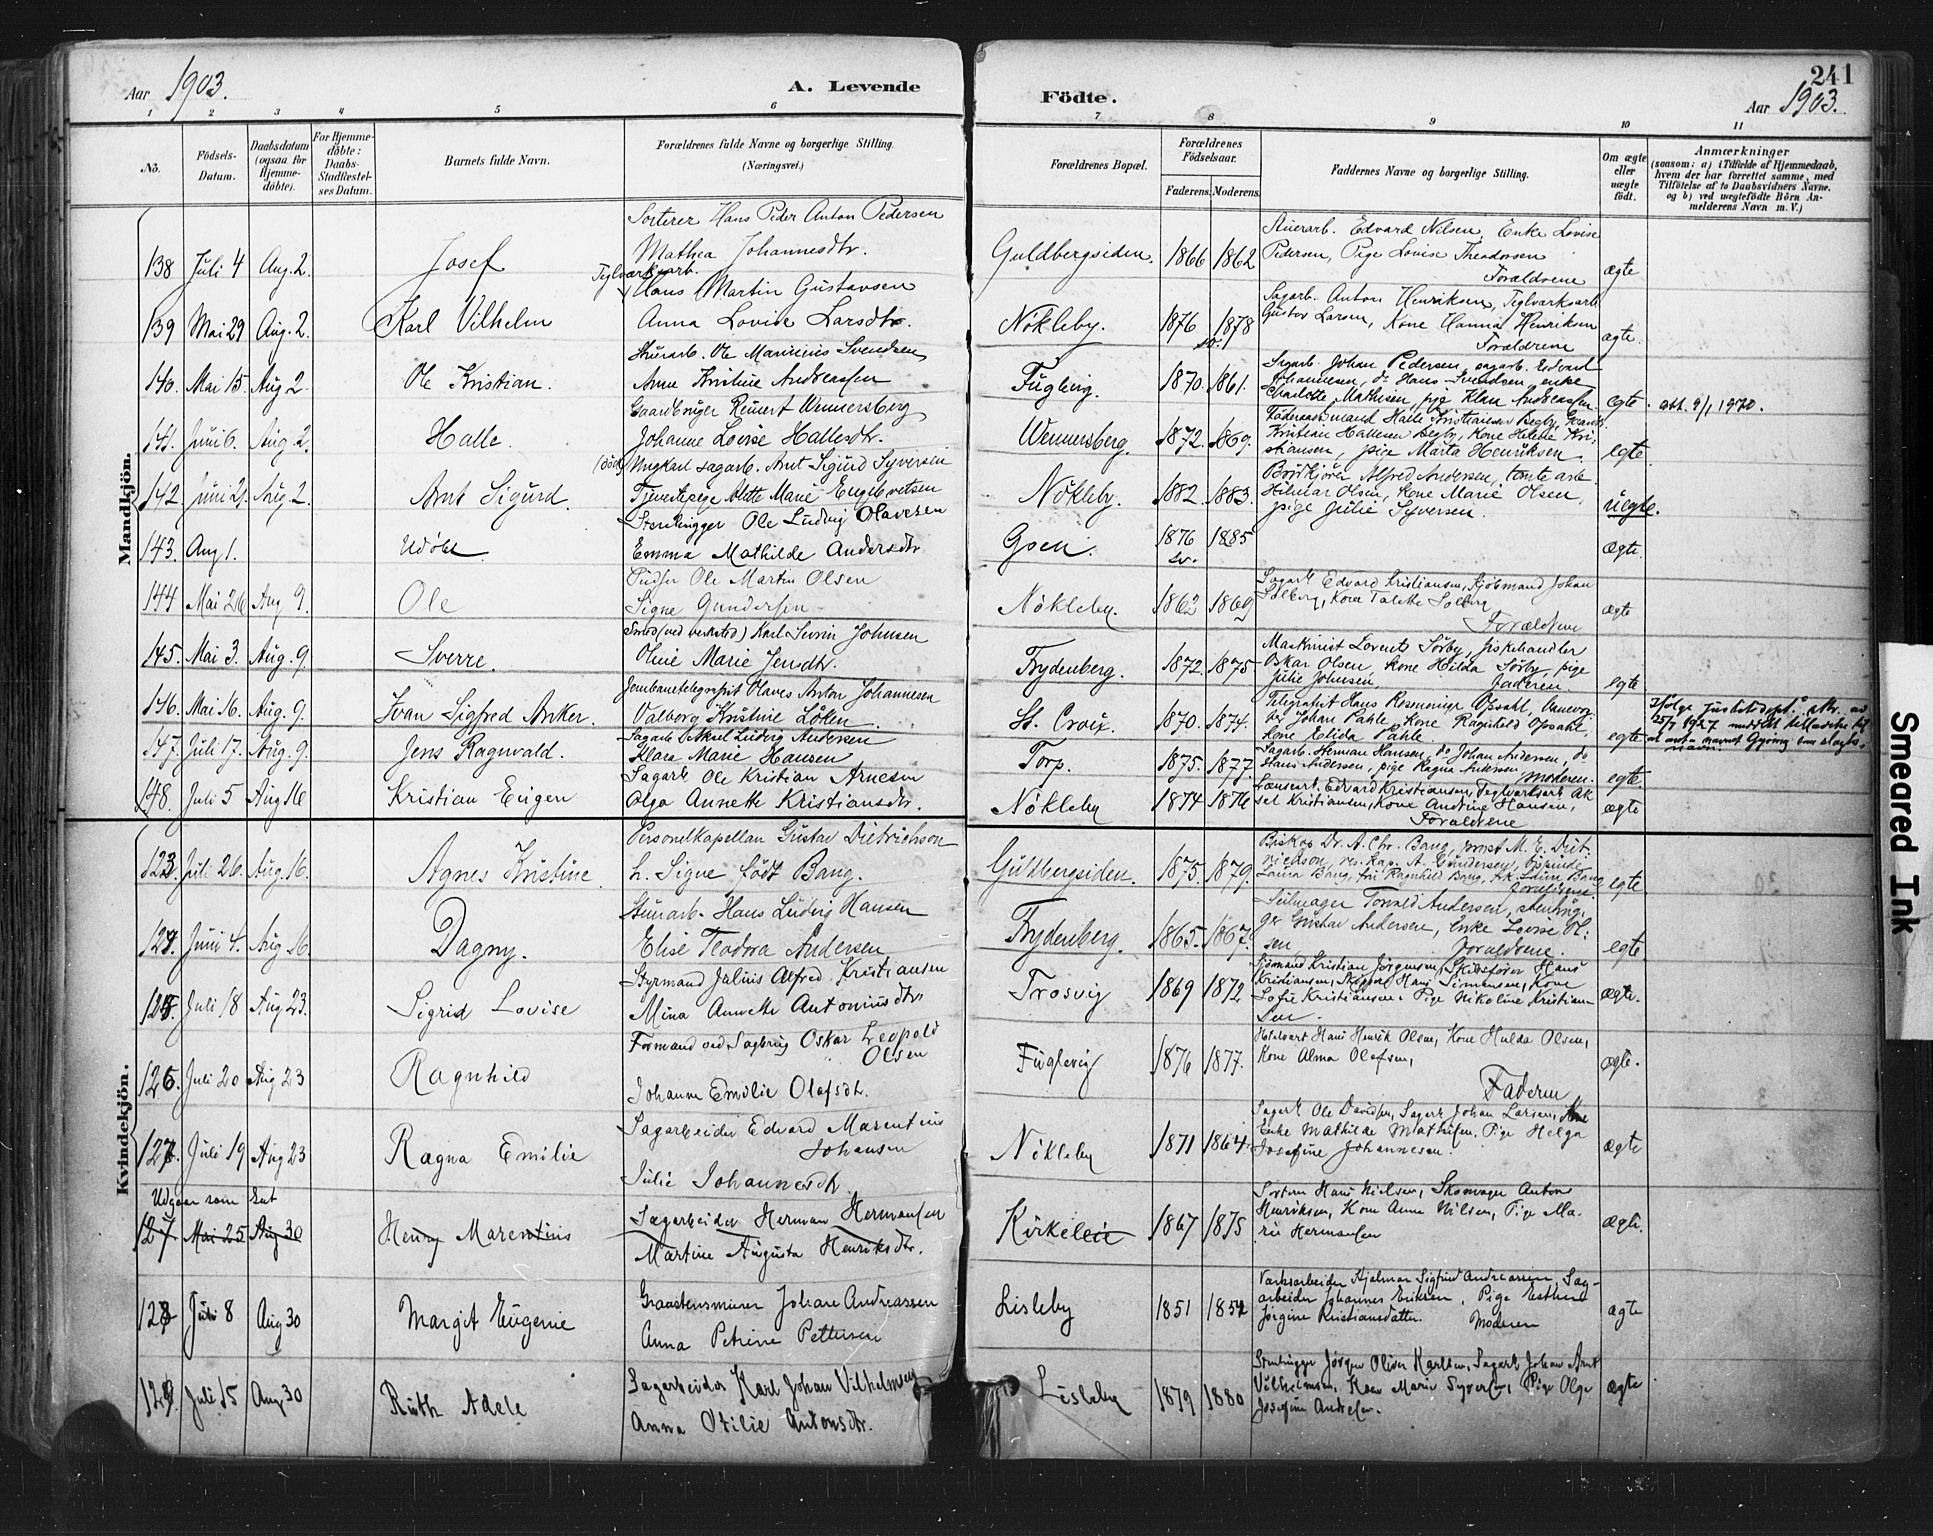 Aar 1903.
A. Levende
Födte.
241
Aar 1903.
1 2 3 4 5 6 7 8 9 10 11
No.
Födsels-Datum.
Daabsdatum (ogsaa for Hjemmedöbte).
For Hjemmedöbte: Daabs-Stadfæstelses Datum.
Barnets fulde Navn.
Forældrenes fulde Navne og borgerlige Stilling. (Næringsvei.)
Forældrenes Bopæl.
Forældrenes Födselsaar.
Faderens. Moderens.
Faddernes Navne og borgerlige Stilling.
Om ægte eller uægte födt.
Anmærkninger
(saasom: a) i Tilfælde af Hjemmedaab, hvem der har forrettet samme, med Tilföielse af to Daabsvidners Navne, og b) ved uægtefödte Börn Anmelderens Navn m. V.)
Mandkjön.
138 Juli 4 Aug. 2. Josef
Sorterer Hans Peder Anton Pedersen
Mathea Johannesdtr.
Guldbergsiden. 1866 1862
Stuerarb. Edvard Nilsen, Enke Lovise
Pedersen, Pige Lovise Theodorsen
Foraldrene
ægte
139 Mai 29 Aug. 2. Karl Vilhelm
Teglværksarb.
Hans Martin Gustavsen
Anna Lovise Larsdtr.
Nökleby. 1876 1878
sv.
Sagarb. Anton Henriksen, Teglværksarb
Gustav Larsen, Kone Hanna Henriksen
Foraldrene
ægte.
140. Mai 15. Aug 2. Ole Kristian.
Stuerarb. Ole Marinius Svendsen
Anne Kristine Andreassen
Fuglevig. 1870. 1861.
Sagarb. Johan Pedersen, sagarb. Edvard
Johannesen, do Hans Svendsen, enke
Charlotte Mathisen, pige Klara Andreassen
egte. att. 9/1 1970.
141. Juni 6. Aug. 2. Halle.
Gaardbruger Reinert Wennersberg
Johanne Lovise Hallesdtr.
Wennersberg. 1872. 1869.
Föderaadsmand Halle Kristiansen Begby, Gaardb.
Kristian Hallesen Begby, Kone Helene Kri-
stiansen, pige Marta Henriksen
egte.
142 Juni 21. Aug. 2. Arnt Sigurd.
(död) Ungkarl sagarb. Arnt Sigurd Syversen
Tjenestepige Alette Marie Engebretsen
Nökleby. 1882. 1883.
Alfred Andersen, tomtearb.
Hilmar Olsen, kone Marie Olsen,
pige Julie Syversen.
uegte.
143. Aug 1. Udöbt
Stenhugger Ole Ludvig Olavesen
Emma Mathilde Andersdtr.
1876 1885
sv.
ægte.
144 Mai 26 Aug 9. Ole
Pudser Ole Martin Olsen
Signe Gundersen
Nökleby. 1862 1869
Sagarb. Edvard Kristiansen, Sjömand Johan
Solberg, Kone Talette Solberg
Forældrene
ægte
145. Mai 3. Aug. 9. Sverre.
Smed (ved verksted) Karl Severin Johnsen
Oline Marie Jensdtr.
Frydenberg. 1872. 1875.
Maskinist Lorents Sörby, fiskehandler
Oskar Olsen, kone Hilda Sörby, pige
Julie Johnsen, Faderen
egte
146. Mai 16. Aug. 9. Ivan Sigfred Anker.
Jernbanetelegrafist Olaves Anton Johannesen
Valborg Kristine Löken
St. Croix. 1870. 1874.
Telegrafist Hans Rosenvinge Opsahl,
Johan Pahle, Kone Ragnhild Opsahl,
Kone Elida Pahle
egte
Ifölge Justitsdept.s skr. av
25/7 1927 meddelt tilladelse til
at anta navnet Gjöing som slægts-
navn.
147. Juli 17. Aug. 9. Jens Ragnvald.
Sagarb. Aksel Ludvig Andersen
Klara Marie Hansen
Torp. 1875. 1877.
Sagarb. Herman Hansen, do Johan Andersen, do
Hans Andersen, pige Ragna Andersen, moderen.
egte.
148. Juli 5 Aug 16 Kristian Eugen
Sagarb Ole Kristian Arnesen
Olga Annette Kristiansdtr.
Nökleby 1874 1876
Edvard Kristiansen, Teglværksarb Ak
sel Kristiansen, Kone Andrine Hansen,
Foraldrene
ægte
Kvindekjön.
123. Juli 26. Aug. 16. Agnes Kristine.
Personelkapellan Gustav Dietrichson
h. Signe född Bang.
Guldbergsiden. 1875. 1879.
Biskop Dr. A. Chr. Bang, provst M. E. Diet-
richson, res. kap. A. Gundersen,
Laura Bang, frk Ragnhild Bang, frk. Laura Bang
Forældrene
egte.
124. Juni 4. Aug 16. Dagny.
Stuerarb. Hans Ludvig Hansen
Elise Teodora Andersen
Frydenberg. 1865. 1867.
Seilmager Torvald Andersen, stenhug-
ger Gustav Andersen, Enke Lovise Ol-
sen Foraldrene.
egte
125. Juli 18 Aug 23. Sigrid Lovise
Styrmand Julius Alfred Kristiansen
Mina Annette Antoniusdtr.
Trosvig 1869 1872
Sjömand Kristian Jörgensen, Skibsförer Hans
Kristiansen, Skipper Hans Simensen, Kone
Sofie Kristiansen, Pige Nikoline Kristian
sen.
ægte.
126. Juli 20 Aug 23 Ragnhild
Formand ved Sagbrug Oskar Leopold
Olsen
Johanne Emilie Olafsdtr.
Fuglevig 1876 1877.
Hans Henrik Olsen, Kone Hulda Olsen,
Kone Alma Olafsen,
Faderen
ægte.
127. Juli 19 Aug 23 Ragna Emilie
Sagarbeider Edvard Marentius
Johansen
Julie Johannesdtr.
Nökleby 1871 1864
Sagarb Ole Davidsen, Sagarb Johan Larsen,
Enke Mathilde Mathisen, Pige Helga
Josefine Johannesen.
ægte
Udgaar som
127 Mai 25 Aug 30 Henry Marentius
Sagarbeider Herman Hermansen
Martine Augusta Henriksdtr.
Kirkeleie 1867 1875
Hans Nielsen, Skomager Anton
Henriksen, Kone Anne Nilsen, Pige Ma-
rie Hermansen
ægte.
128 Juli 8 Aug 30 Margit Eugenie
Graastensmurer Johan Andreassen
Anna Petrine Pettersen
Lisleby 1851 1854
Værksarbeider Hjalmar Sigfrid Andreassen, Sag-
arbeider Johannes Eriksen, Pige Esther
Jörgine Kristiansdatter. Moderen
ægte
129 Juli 15 Aug 30 Ruth Adele
Sagarbeider Karl Johan Vilhelmsen
Anna Otilie Antonsdtr.
Lisleby 1879 1880
Stenhugger Jörgen Oliver Karlsen, Sagarb Johan Arnt
Vilhelmsen, Kone Marie Syversen, Pige Olga
Josefine Andresen.
ægte
Smeared Ink